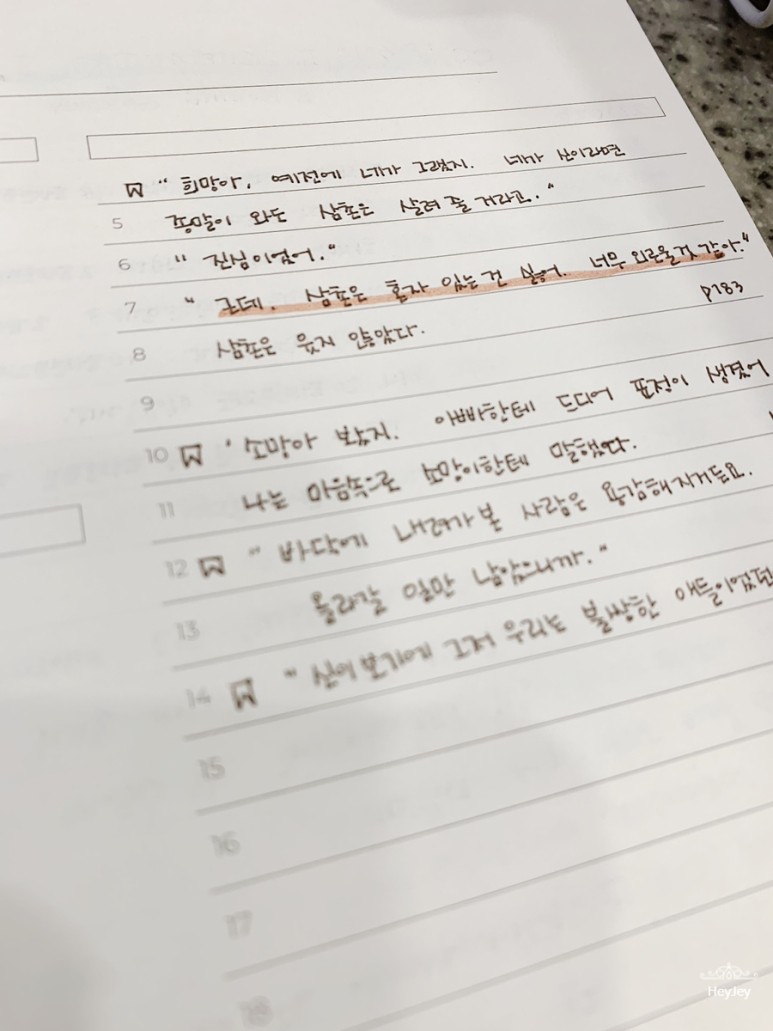 " 희망아, 예전에 네가 그랬지. 네가 신이라면
5 종말이 와도 삼촌은 살려 줄 거라고. "
6 " 진심이었어. "
7 " 근데, 삼촌은 혼자 있는 건 싫어. 너무 외로울것 같아. "
p183
8 삼촌은 웃지 않았다.
9
10 ' 소망아 봤지. 아빠한테 드디어 표정이 생겼어
11 나는 마음속으로 소망이한테 말했다.
12 " 바닥에 내려가 본 사람은 용감해지거든요.
13 올라갈 일만 남았으니까. "
14 " 신이 보기에 그저 우리는 불쌍한 애들이었던
15
16
17
18
HeyJey